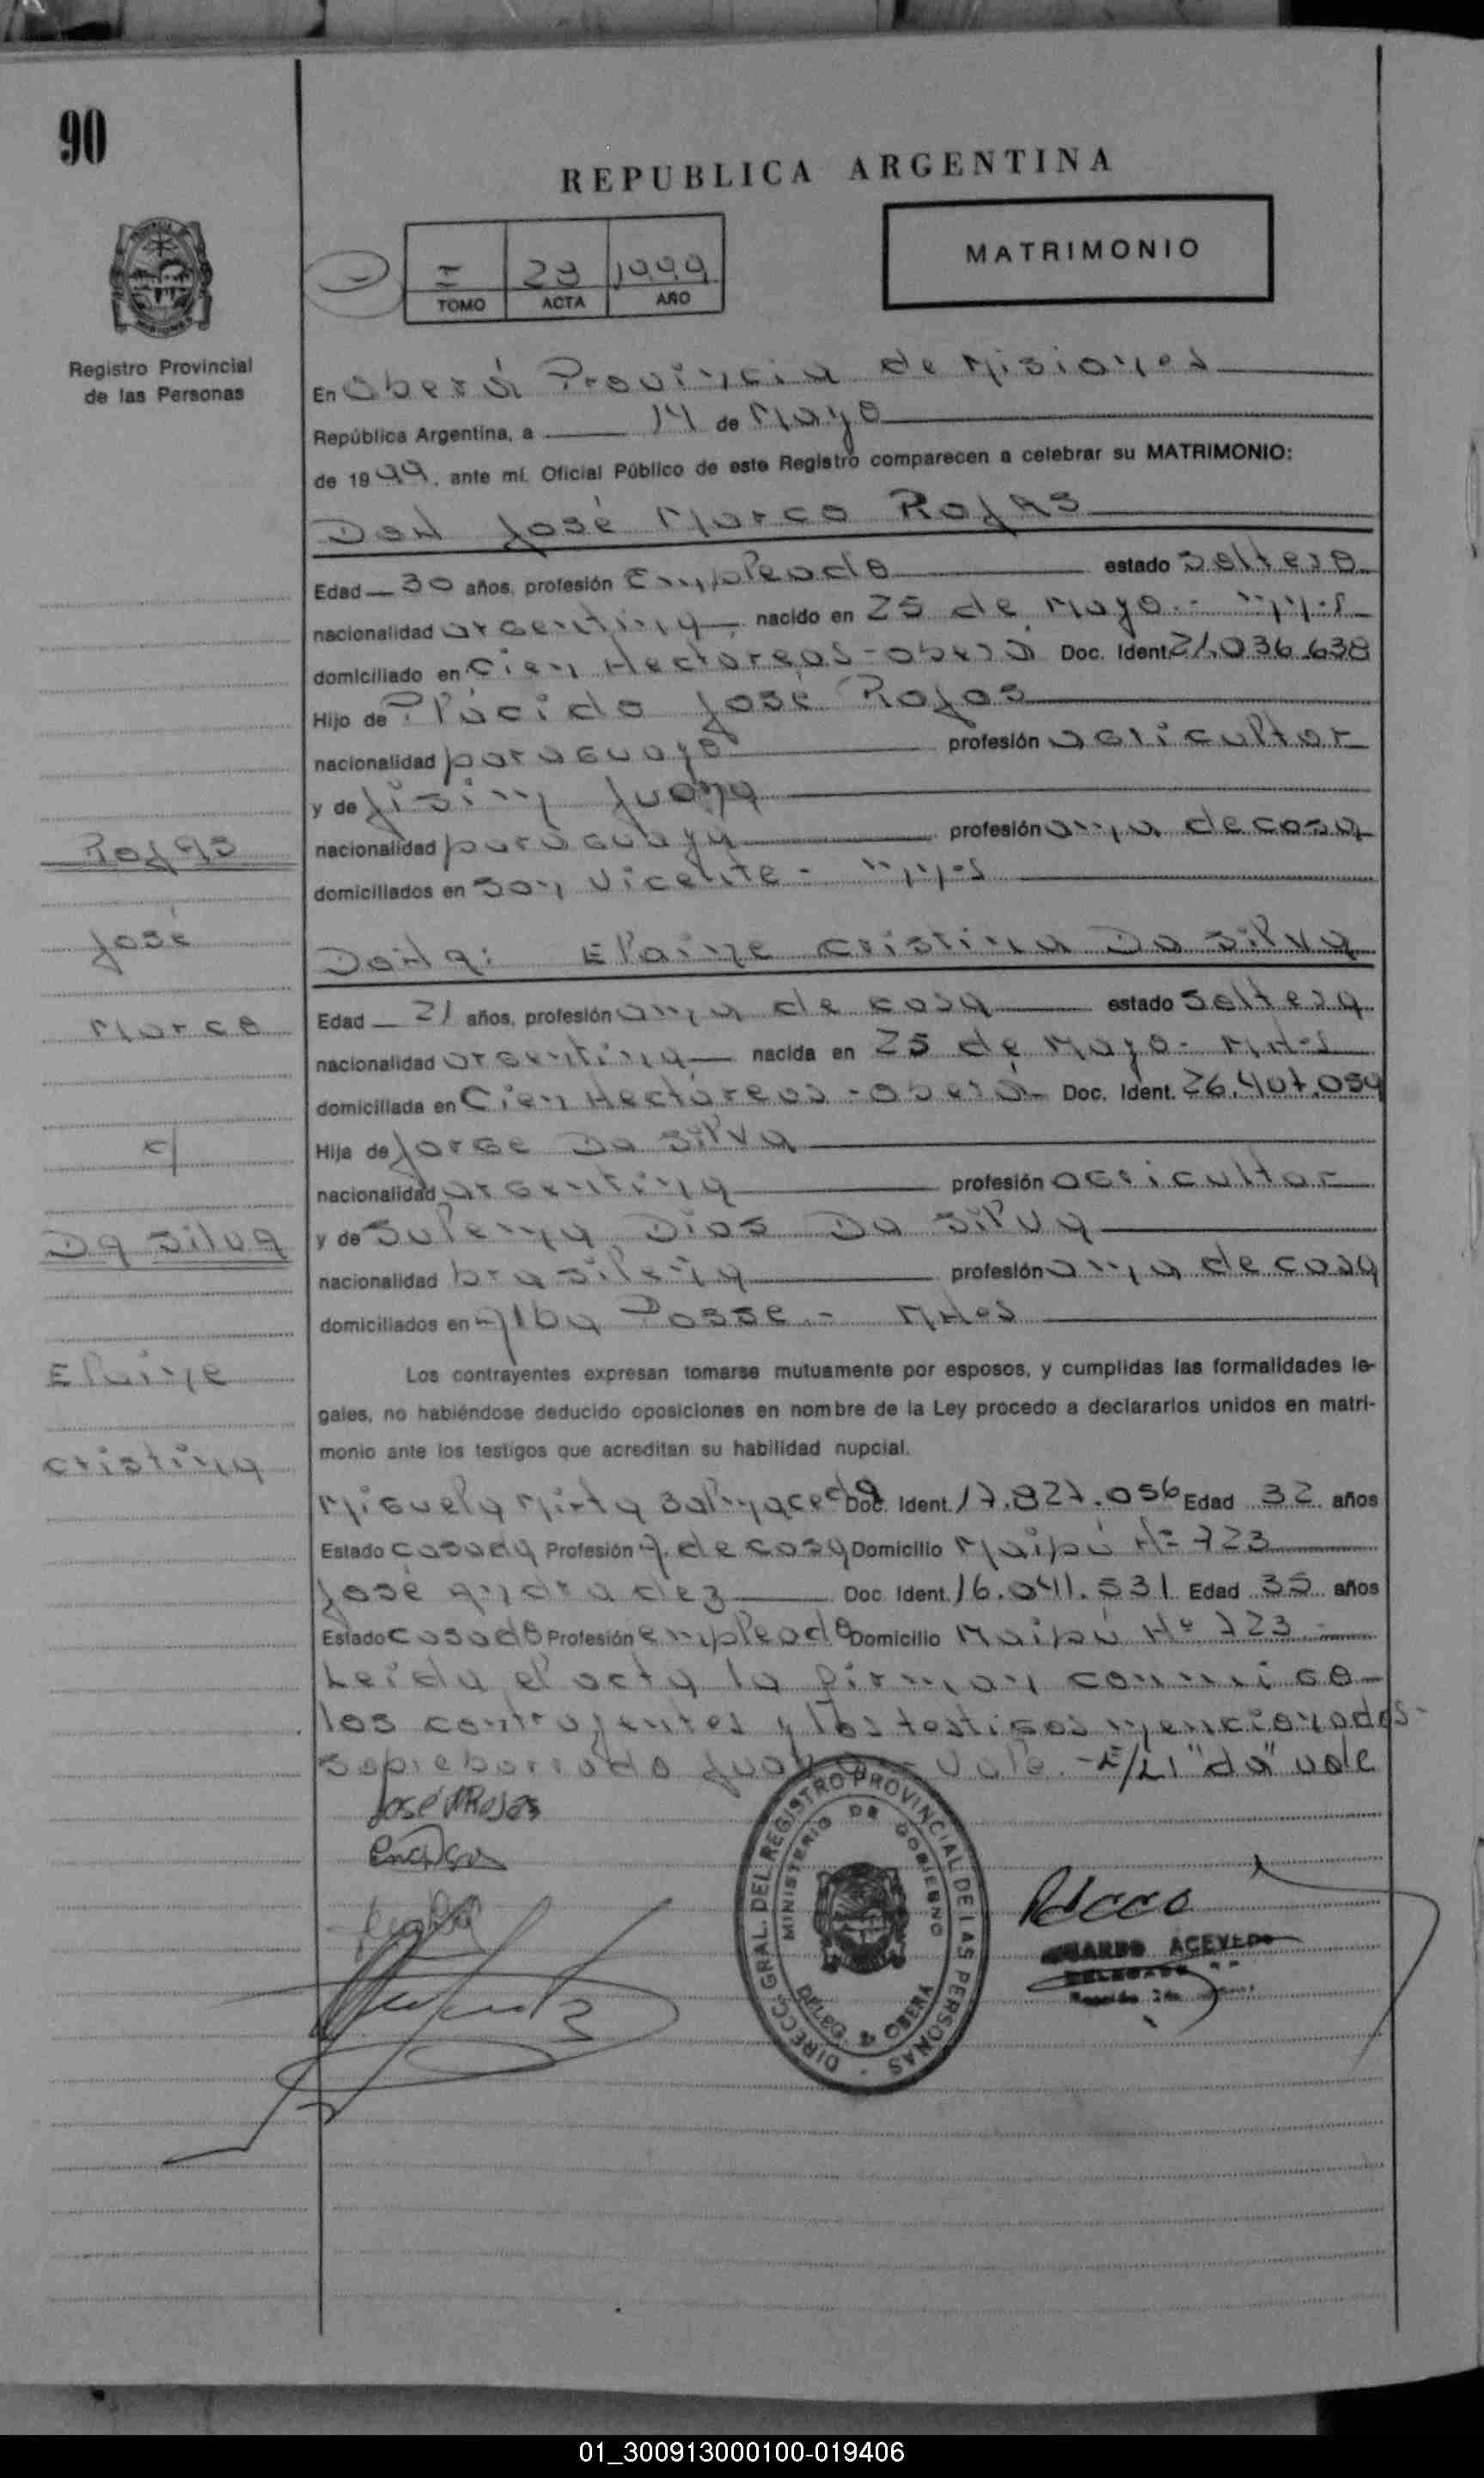 90
REPUBLICA ARGENTINA
MATRIMONIO
I 29 1999
TOMO ACTA AÑO
Registro Provincial
de las Personas
En Oberá Provincia de Misiones
República Argentina, a 14 de Mayo
de 1999, ante mí, Oficial Público de este Registro comparecen a celebrar su MATRIMONIO:
Don José Marco Rojas
Edad 30 años, profesión Empleado estado soltero
nacionalidad argentina nacido en 25 de Mayo.-
domiciliado en Cien Hectáreas - Oberá Doc. Ident. 21.036.638
Hijo de Plácido José Rojas
nacionalidad paraguayo profesión agricultor
y de Juana
nacionalidad paraguaya profesión ama de casa
domiciliados en San Vicente -
Rojas
José
Marco
c/
Da Silva
Elaine
Cristina
Doña: Elaine Cristina Da Silva
Edad 21 años, profesión ama de casa estado soltera
nacionalidad argentina nacida en 25 de Mayo-
domiciliada en Cien Hectáreas - Oberá Doc. Ident. 26.407.059
Hija de Jorge Da Silva
nacionalidad argentina profesión agricultor
y de Sulema Dias Da Silva
nacionalidad brasileña profesión ama de casa
domiciliados en Alba Posse.-
Los contrayentes expresan tomarse mutuamente por esposos, y cumplidas las formalidades le-
gales, no habiéndose deducido oposiciones en nombre de la Ley procedo a declararlos unidos en matri-
monio ante los testigos que acreditan su habilidad nupcial.
Miguela Mirta Doc. Ident. 17.827.056 Edad 32 años
Estado casada Profesión A. de casa Domicilio Maipú Nº 723
José Andradez Doc. Ident. 16.041.531 Edad 35 años
Estado casado Profesión empleado Domicilio Maipú Nº 723
Leída el acta la firman conmigo
los contrayentes y los testigos mencionados-
sobreborrado Juana - Vale - E/Li "da" vale
José M Rojas
DIRECC. GRAL. DEL REGISTRO PROVINCIAL DE LAS PERSONAS -
MINISTERIO DE GOBIERNO
DELEG. OBERA
ACEVEDO
01_300913000100-019406